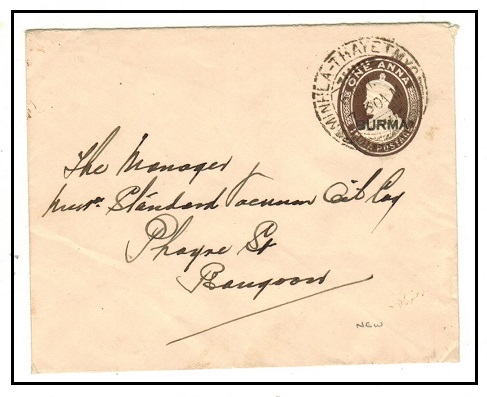 MINHLA-THAYETMYO
ONE ANNA
BURMA
INDIA POSTAGE
The Manager
Messrs. Standard Vacuum Oil Coy
Phayre St
Rangoon
NEW